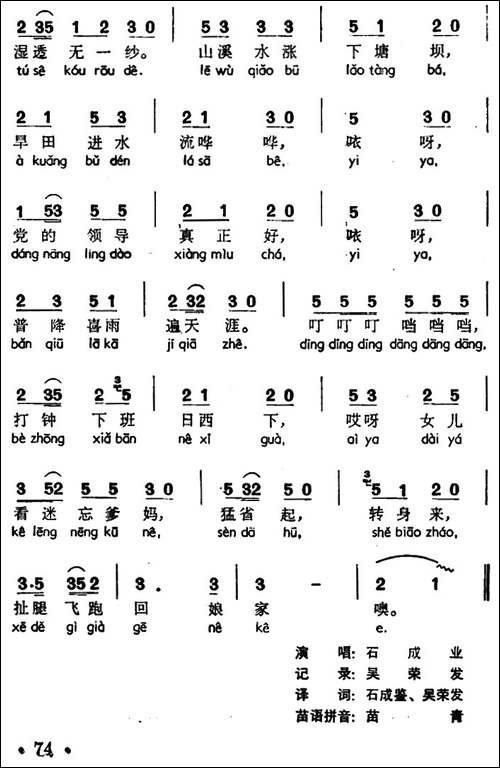 2 35 1 2 3 0 | 5 3 3 3 | 5 1 2 0 |
湿透 无一纱。 山溪 水涨 下塘 坝,
tú sê kóu rōu dê. lē wù qiǎo bū lǎo tàng bá,
2 1 5 3 | 2 1 3 0 | 5 3 0 |
旱田 进水 流哗 哗, 咴 呀,
à kuǎng bǔ dén lá sā bê, yi ya,
1 53 5 5 | 2 1 2 0 | 5 3 0 |
党的 领导 真正 好, 咴 呀,
dáng nāng ling dào xiàng mìu chá, yi ya,
2 3 5 1 | 2 32 3 0 | 5 5 5 5 5 5 |
普降 喜雨 遍天 涯。 叮叮叮 当当当,
bǎn qiū lā kā jí qiā zhê. dīng dīng dīng dāng dāng dāng,
2 35 2 3 5 | 2 1 2 0 | 5 3 2 5 |
打钟 下班 日西 下, 哎呀 女儿
bè zhōng xiǎ bān nê xǐ guà, aì ya dài yá
3 52 5 5 3 0 | 5 32 5 0 | 3 5 1 2 0 |
看迷 忘爹 妈, 猛省 起, 转身 来,
kê lēng nēng kū nê, sèn dā hū, shě biāo zháo,
3·5 35 2 | 3 . 3 | 3 - | 2 1 ‖
扯腿 飞跑 回 娘 家 噢。
xē dě gì già gē nê kê e.
演 唱：石 成 业
记 录：吴 荣 发
译 词：石成鉴、吴荣发
苗语拼音：苗 青
· 74 ·